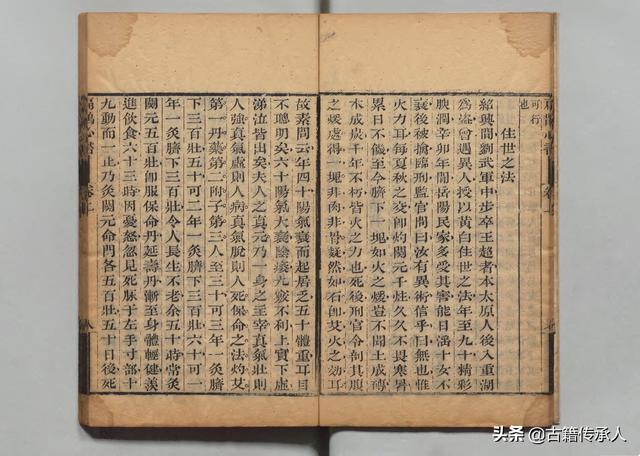 扁鵲心書 卷上
可行
也
住世之法
紹興間劉武軍中步卒王超者本太原人後入重湖
為盜曾遇異人授以黃白住世之法年至九十精彩
腴潤辛卯年間岳陽民家多受其害能日淫十女不
衰後被擒臨刑監官問曰汝有異術信乎曰無也惟
火力耳每夏秋之交即灼關元千炷久久不畏寒暑
累日不饑至今臍下一塊如火之煖豈不聞土成磚
木成炭千年不朽皆火之力也死後刑官令剖其腹
之煖處得一塊非肉非骨凝然如石即艾火之効耳
故素問云年四十陽氣衰而起居乏五十體重耳目
不聰明矣六十陽氣大衰陰痿九竅不利上實下虛
涕泣皆出矣夫人之真元乃一身之主宰真氣壯則
人強真氣虛則人病真氣脫則人死保命之法灼艾
第一丹藥第二附子第三人至三十可三年一灸臍
下三百壯五十可二年一灸臍下三百壯六十可一
年一灸臍下三百壯令人長生不老余五十時常灸
關元五百壯即服保命丹延壽丹漸至身體輕健羡
進飲食六十三時因憂怒忽見死脈于左手寸部十
九動而一止乃灸關元命門各五百壯五十日後死
扁鵲心書 卷上 八
头条 @古籍传承人